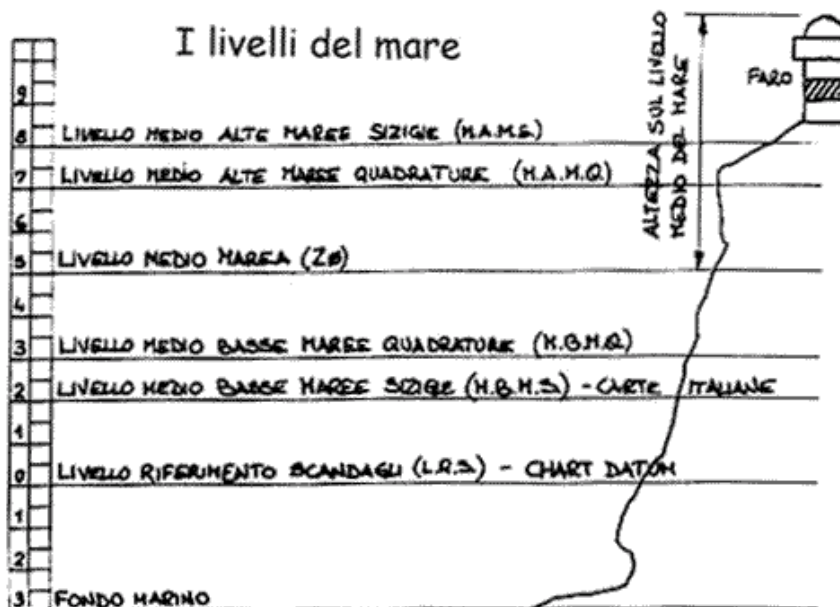 I livelli del mare
FARO
ALTEZZA SUL LIVELLO
MEDIO DEL MARE
9
LIVELLO MEDIO ALTE MAREE SIZIGIE (M.A.M.S.)
8
LIVELLO MEDIO ALTE MAREE QUADRATURE (M.A.M.Q)
7
6
LIVELLO MEDIO MAREA (ZØ)
5
4
LIVELLO MEDIO BASSE MAREE QUADRATURE (M.B.M.Q)
3
LIVELLO MEDIO BASSE MAREE SIZIGIE (M.B.M.S.) - CARTE ITALIANE
2
1
LIVELLO RIFERIMENTO SCANDAGLI (L.R.S.) - CHART DATUM
0
1
2
FONDO MARINO
3